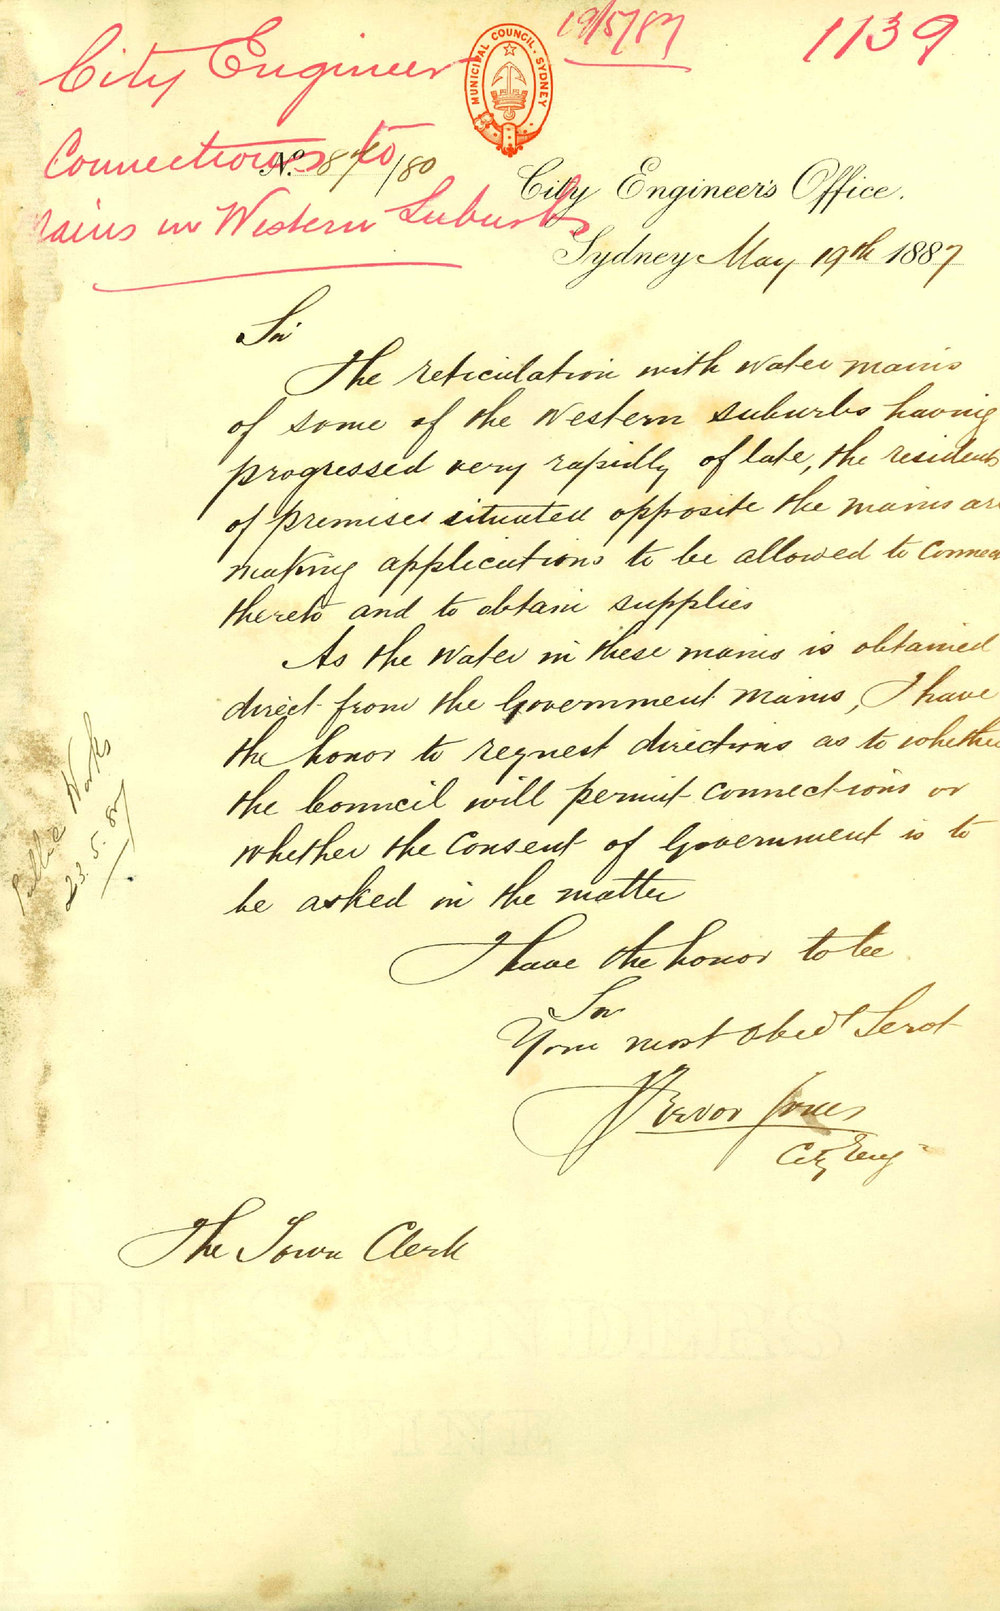 City Engineer
19/5/87
1139
MUNICIPAL COUNCIL. SYDNEY
Connections to
No. 87/80
mains in Western Suburbs
City Engineer's Office.
Sydney May 19th 1887
Sir
The reticulation with water mains
of some of the Western suburbs having
progressed very rapidly of late, the residents
of premises situated opposite the mains are
making applications to be allowed to connect
thereto and to obtain supplies
As the water in these mains is obtained
direct from the Government mains, I have
the honor to request directions as to whether
the Council will permit connections or
whether the consent of Government is to
be asked in the matter
I have the honor to be
Sir
Your most Obed't Servt
Trevor Jones
City Eng
The Town Clerk
Public Works
23.5.87